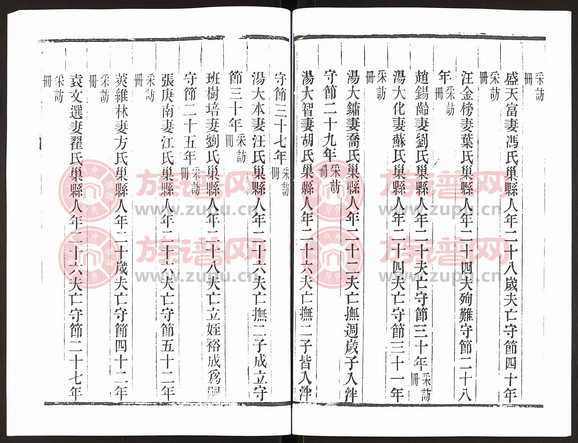 采訪冊
盛天富妻馮氏巢縣人年二十八歲夫亡守節四十年
汪金榜妻葉氏巢縣人年二十四夫殉難守節二十八
年采訪冊
趙錫齡妻劉氏巢縣人年二十夫亡守節三十年采訪冊
湯大化妻蘇氏巢縣人年二十四夫亡守節三十一年
采訪冊
湯大鏞妻喬氏巢縣人年二十二夫亡撫週歲子入泮
守節二十九年采訪冊
湯大智妻胡氏巢縣人年二十六夫亡撫二子皆入泮
守節三十七年采訪冊
湯大本妻汪氏巢縣人年二十六夫亡撫二子成立守
節三十年采訪冊
班樹培妻劉氏巢縣人年二十八夫亡立姪裕成為嗣
守節二十五年采訪冊
張庚南妻江氏巢縣人年二十六夫亡守節五十二年
采訪冊
萬維林妻方氏巢縣人年二十歲夫亡守節四十二年
采訪冊
袁文選妻翟氏巢縣人年二十六夫亡守節二十七年
采訪冊
族谱网
www.zupu.cn
族谱网
www.zupu.cn
族谱网
www.zupu.cn
族谱网
www.zupu.cn